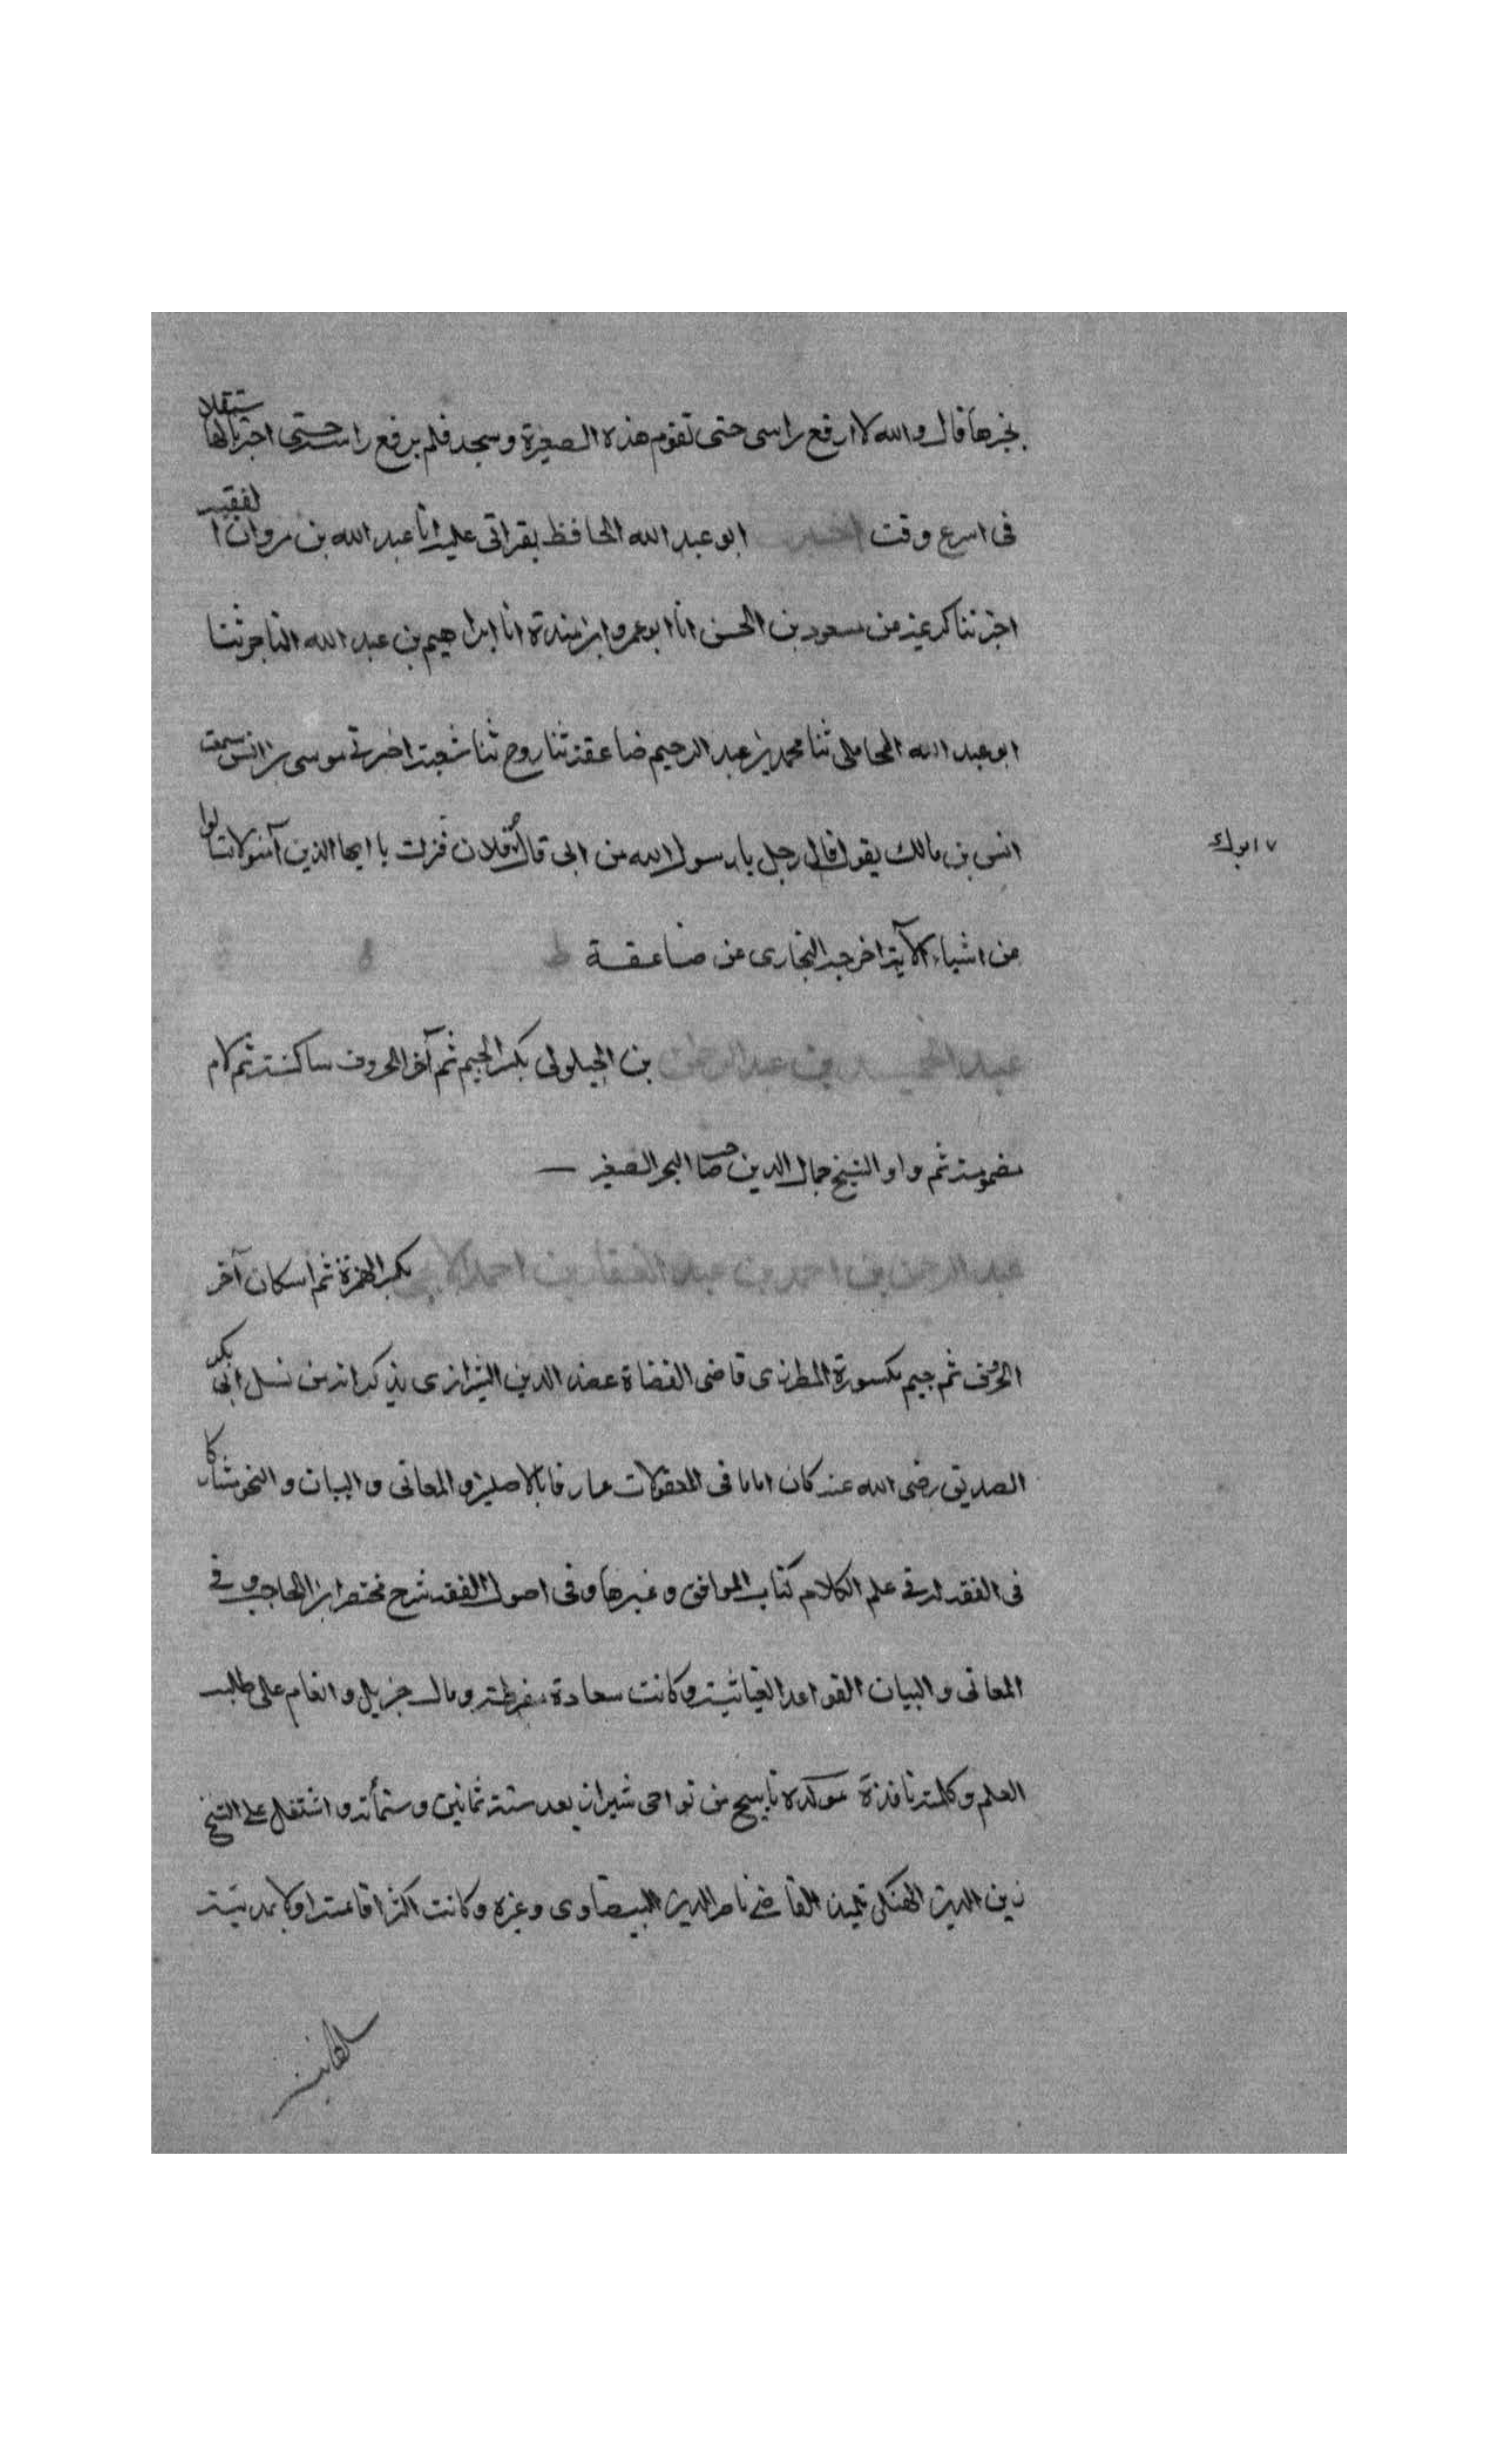 بخبرها قال والله لا ارفع راسى حتى تقوم هذه الصغيرة وسجد فلم يرفع راسه حتى اخبر بانها ستقلا
فى اسرع وقت اخبرنا ابو عبد الله الحافظ بقراتى عليه انا عبد الله بن مروان الفقيه
اخبرتنا كريمة عن مسعود بن الحسن انا ابو عمرو ابن مندة انا ابراهيم بن عبد الله التاجر ثنا
ابو عبد الله المحاملى ثنا محمد بن عبد الرحيم ضاعقة ثنا روح ثنا شعبة اخبرنى موسى بن انس سمعت
انس بن مالك يقول قال رجل يا رسول الله من ابى قال فلان فنزلت يا ايها الذين آمنوا لا تسالوا
ابوك
عن اشياء الآية اخرجه البخارى عن ضاعقة
عبد الحميد بن عبد الرحمن بن الجيلولى بكسر الجيم ثم آخر الحروف ساكنة ثم لام
مضمومة ثم واو الشيخ جمال الدين صا البحر الصغير
عبد الرحمن بن احمد بن عبد الغفار بن احمد الايجى بكسر الهمزة ثم اسكان آخر
الحروف ثم جيم مكسورة المطرزى قاضى القضاة عضد الدين الشيرازى يذكر انه من نسل ابى بكر
الصديق رضى الله عنه كان اماما فى المعقولات عارفا بالاصلين والمعانى والبيان والنحو مشاركا
فى الفقه له فى علم الكلام كتاب المواقف وغيرها وفى اصول الفقه شرح مختصر ابن الحاجب وفى
المعانى والبيان القواعد الغياثية وكانت سعادة مفرطة ومال جزيل وانعام على طلبه
العلم وكلمة نافذة مولده بايج من نواحى شيراز بعد سنة ثمانين وستمأته واشتغل على الشيخ
زين الدين الهنكى تلميذ القاضى ناصر الدين البيضاوى وغيره وكانت اكثر اقامته اولا بمدينة
سلطانية